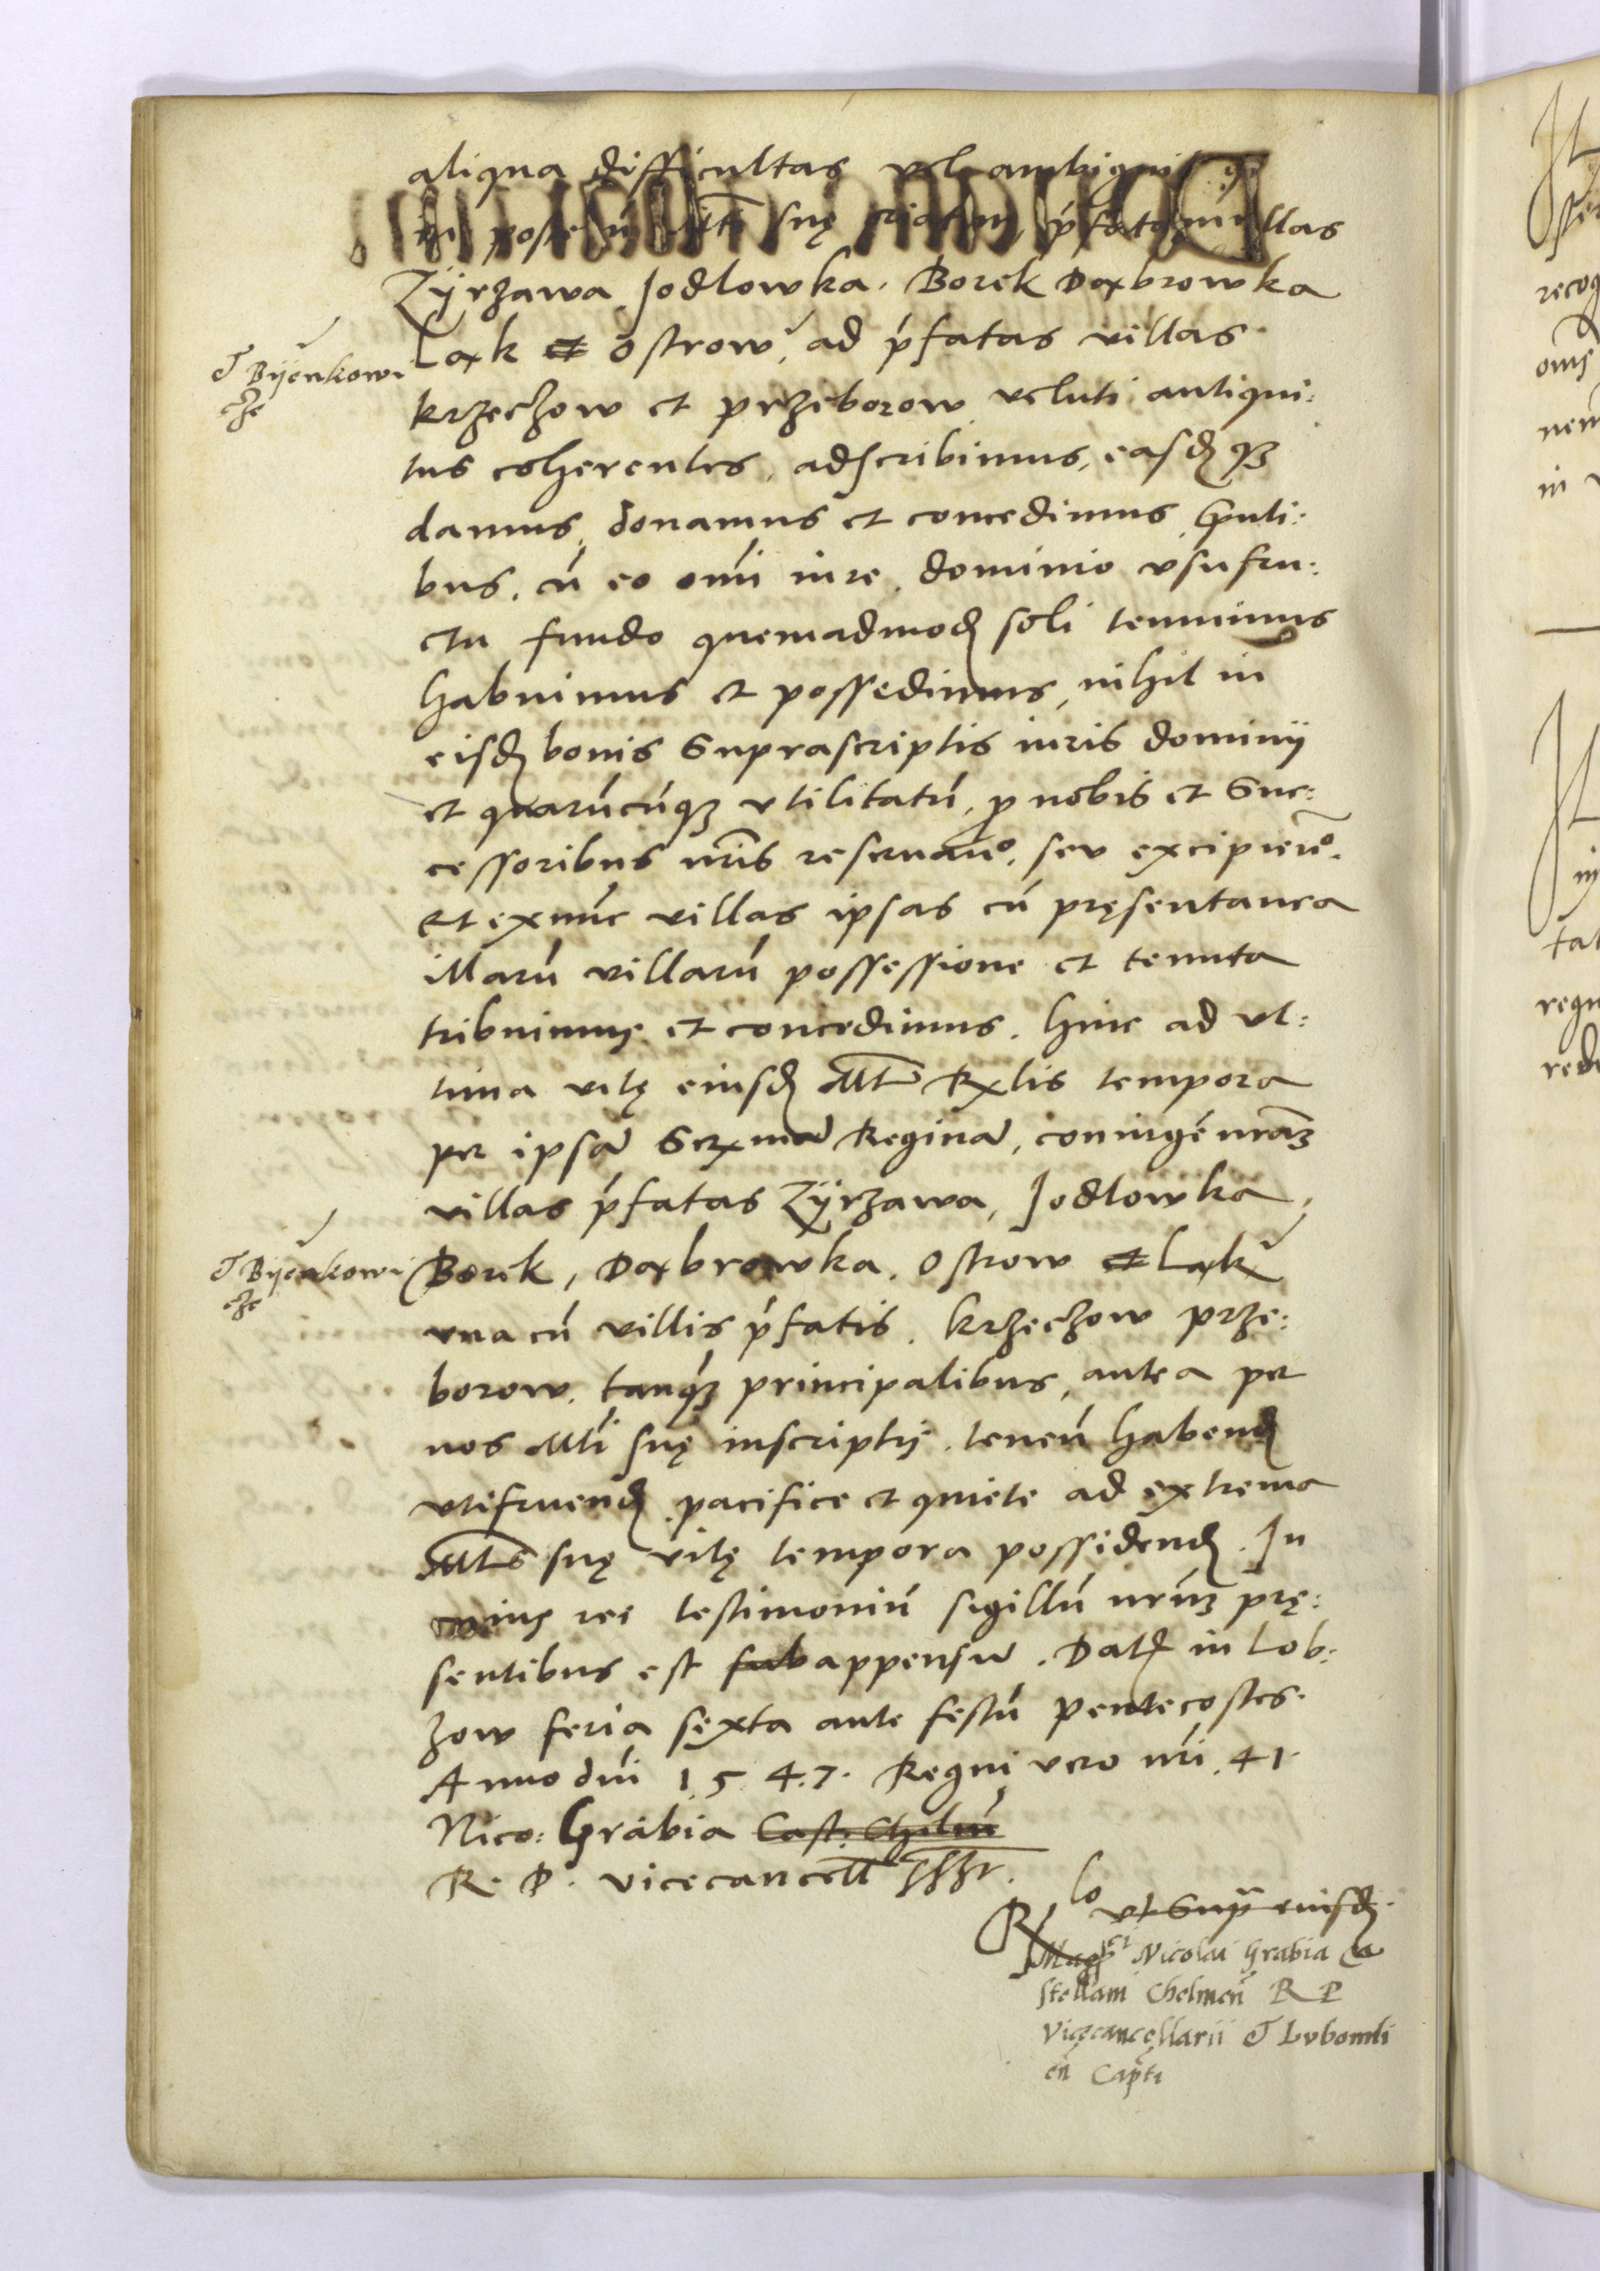 aliqua difficultas vel ambigui
in poste Mtẽ suę ṕfatas villas
Zÿrzawa Jodlowka. Borek Dąxbrowka
Laxk et Ostrow, ad ṕfatas villas
& Bijenkowi
cze
krzeczow et przeborow veluti antiqui:
tus coherentes, adscribimus, easdqz
damus, donamus et concedimus, Gnti:
bus, cũ eo omĩ iure, dominio vsufru:
ctu fundo quemadmod soli tenuimus
habuimus et possedimus, nihil in
eisd bonis Suprascriptis iuris dominij
et quarũcũqz vtilitatũ, p nobis et Suc:
cessoribus nr̃is reseruañº, seu excipieñº.
Et exnũc villas ipsas cũ pręsentanea
illarũ villarũ possessione et tenuta
tribuimus et concedimus. hinc ad vl:
tima vitę eiusd Mtis Rxlis tempora
per ipsã Serxmã Reginã, coniugẽ nrãz
villas ṕfatas Zÿrzawa, Jodlowka,
Borek, Daxbrowka. Ostrow et Laxk
& Bijenkowi
cze
vna cũ villis ṕfatis. krzeczow prze:
borow. tanqz principalibus, antea per
nos Mti suę inscriptis. teneñ habend
vtifruend pacifice et quiete ad extrema
Mtis suę vitę tempora possidend. In
cuius rei testimoniũ sigillũ nrũz prę:
sentibus est sub appensũ. Dat in Lob:
zow feria sexta ante festũ Pentecostes.
Anno dñi 1.5.4.7. Regni vero nr̃i 41.
Nico: Grabia Cast: Chelm̃
R. P. vicecancell sszt.
Rlo vt Supra eiusd
Magci Nicolai Grabia Ca
stellani Chelmeñ R P
Vicęcancęllarii & Lvbomli
eñ Capti